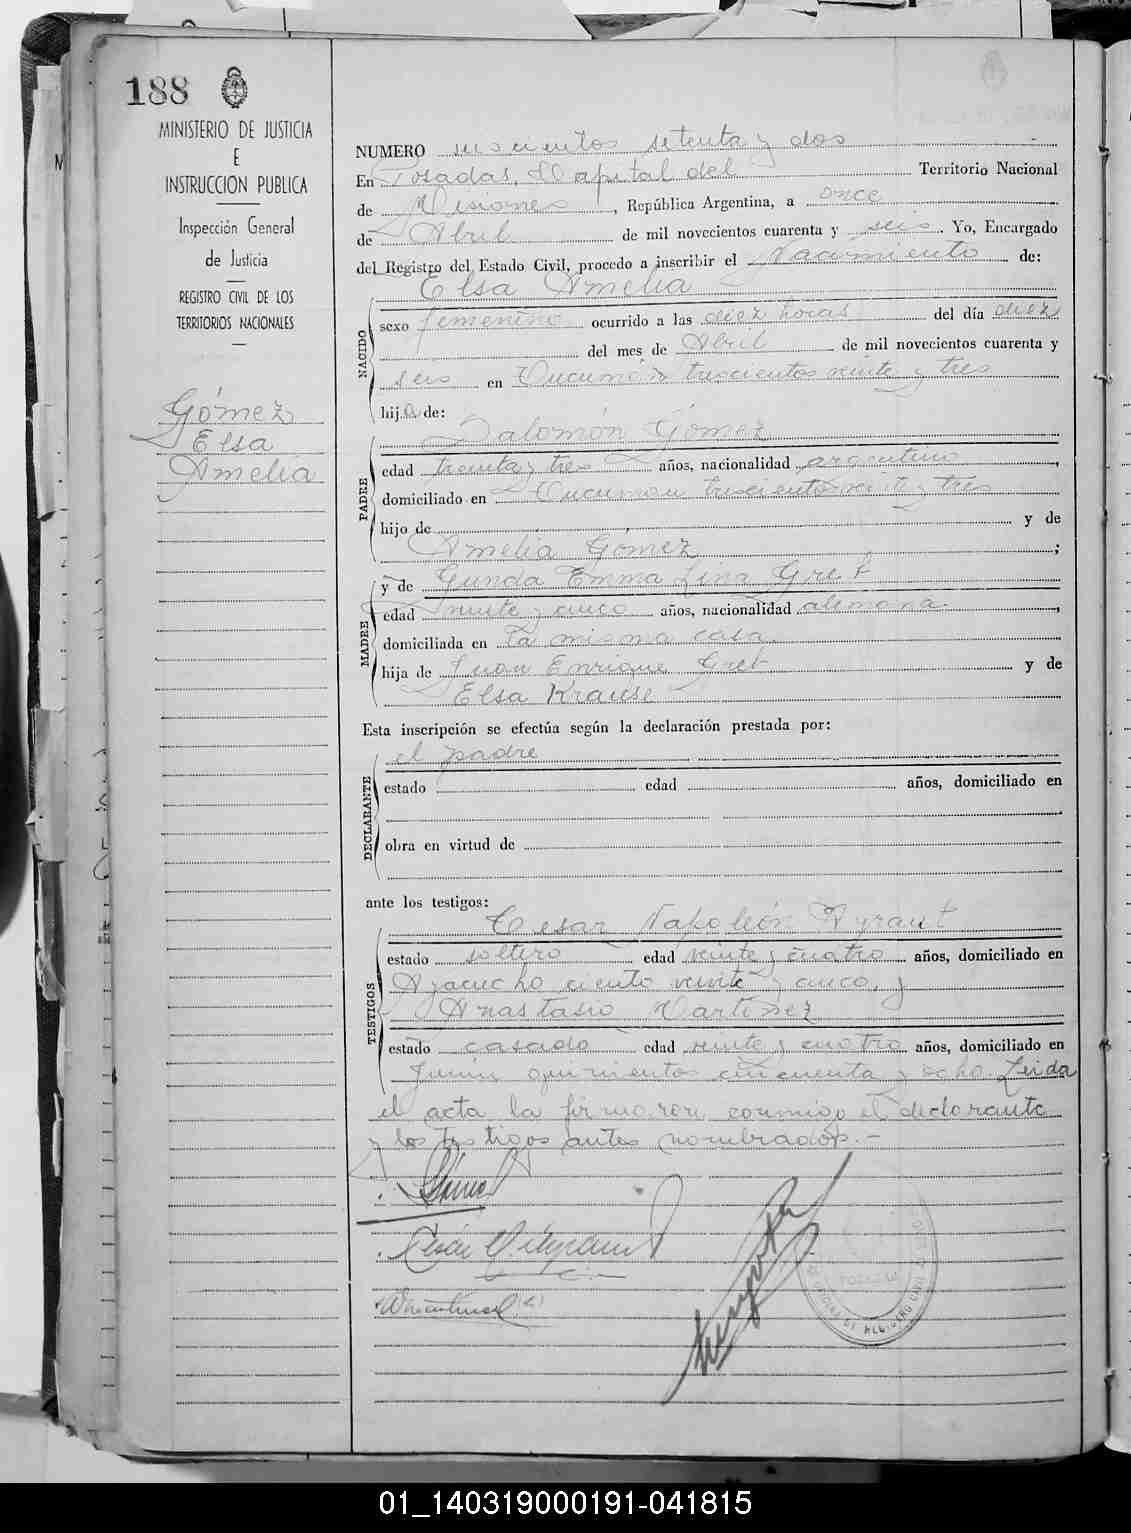 188
MINISTERIO DE JUSTICIA
E
INSTRUCCION PUBLICA
Inspección General
de Justicia
REGISTRO CIVIL DE LOS
TERRITORIOS NACIONALES
Gómez
Elsa
Amelia
NUMERO seiscientos setenta y dos
En Posadas, Capital del Territorio Nacional
de Misiones, República Argentina, a once
de Abril de mil novecientos cuarenta y seis. Yo, Encargado
del Registro del Estado Civil, procedo a inscribir el Nacimiento de:
NACIDO
Elsa Amelia
sexo femenino ocurrido a las diez horas del día diez
del mes de Abril de mil novecientos cuarenta y
seis en Tucumán trescientos veinte y tres
hija de:
PADRE
Salomón Gómez
edad treinta y tres años, nacionalidad argentino,
domiciliado en Tucuman trescientos veinte y tres
hijo de y de
Amelia Gómez;
MADRE
y de Gunda Emma Lina Gret
edad veinte y cinco años, nacionalidad alemana,
domiciliada en la misma casa
hija de Juan Enrique Gret y de
Elsa Krause
Esta inscripción se efectúa según la declaración prestada por:
DECLARANTE
el padre
estado edad años, domiciliado en
obra en virtud de
ante los testigos:
TESTIGOS
Cesar Napoleón Ayraut
estado soltero edad veinte y cuatro años, domiciliado en
Ayacucho ciento veinte y cinco, y
Anastasio Martinez
estado casado edad veinte y cuatro años, domiciliado en
Junin quinientos cincuenta y ocho. Leida
el acta la firmaron conmigo el declarante
y los testigos antes nombrados.-
01_140319000191-041815